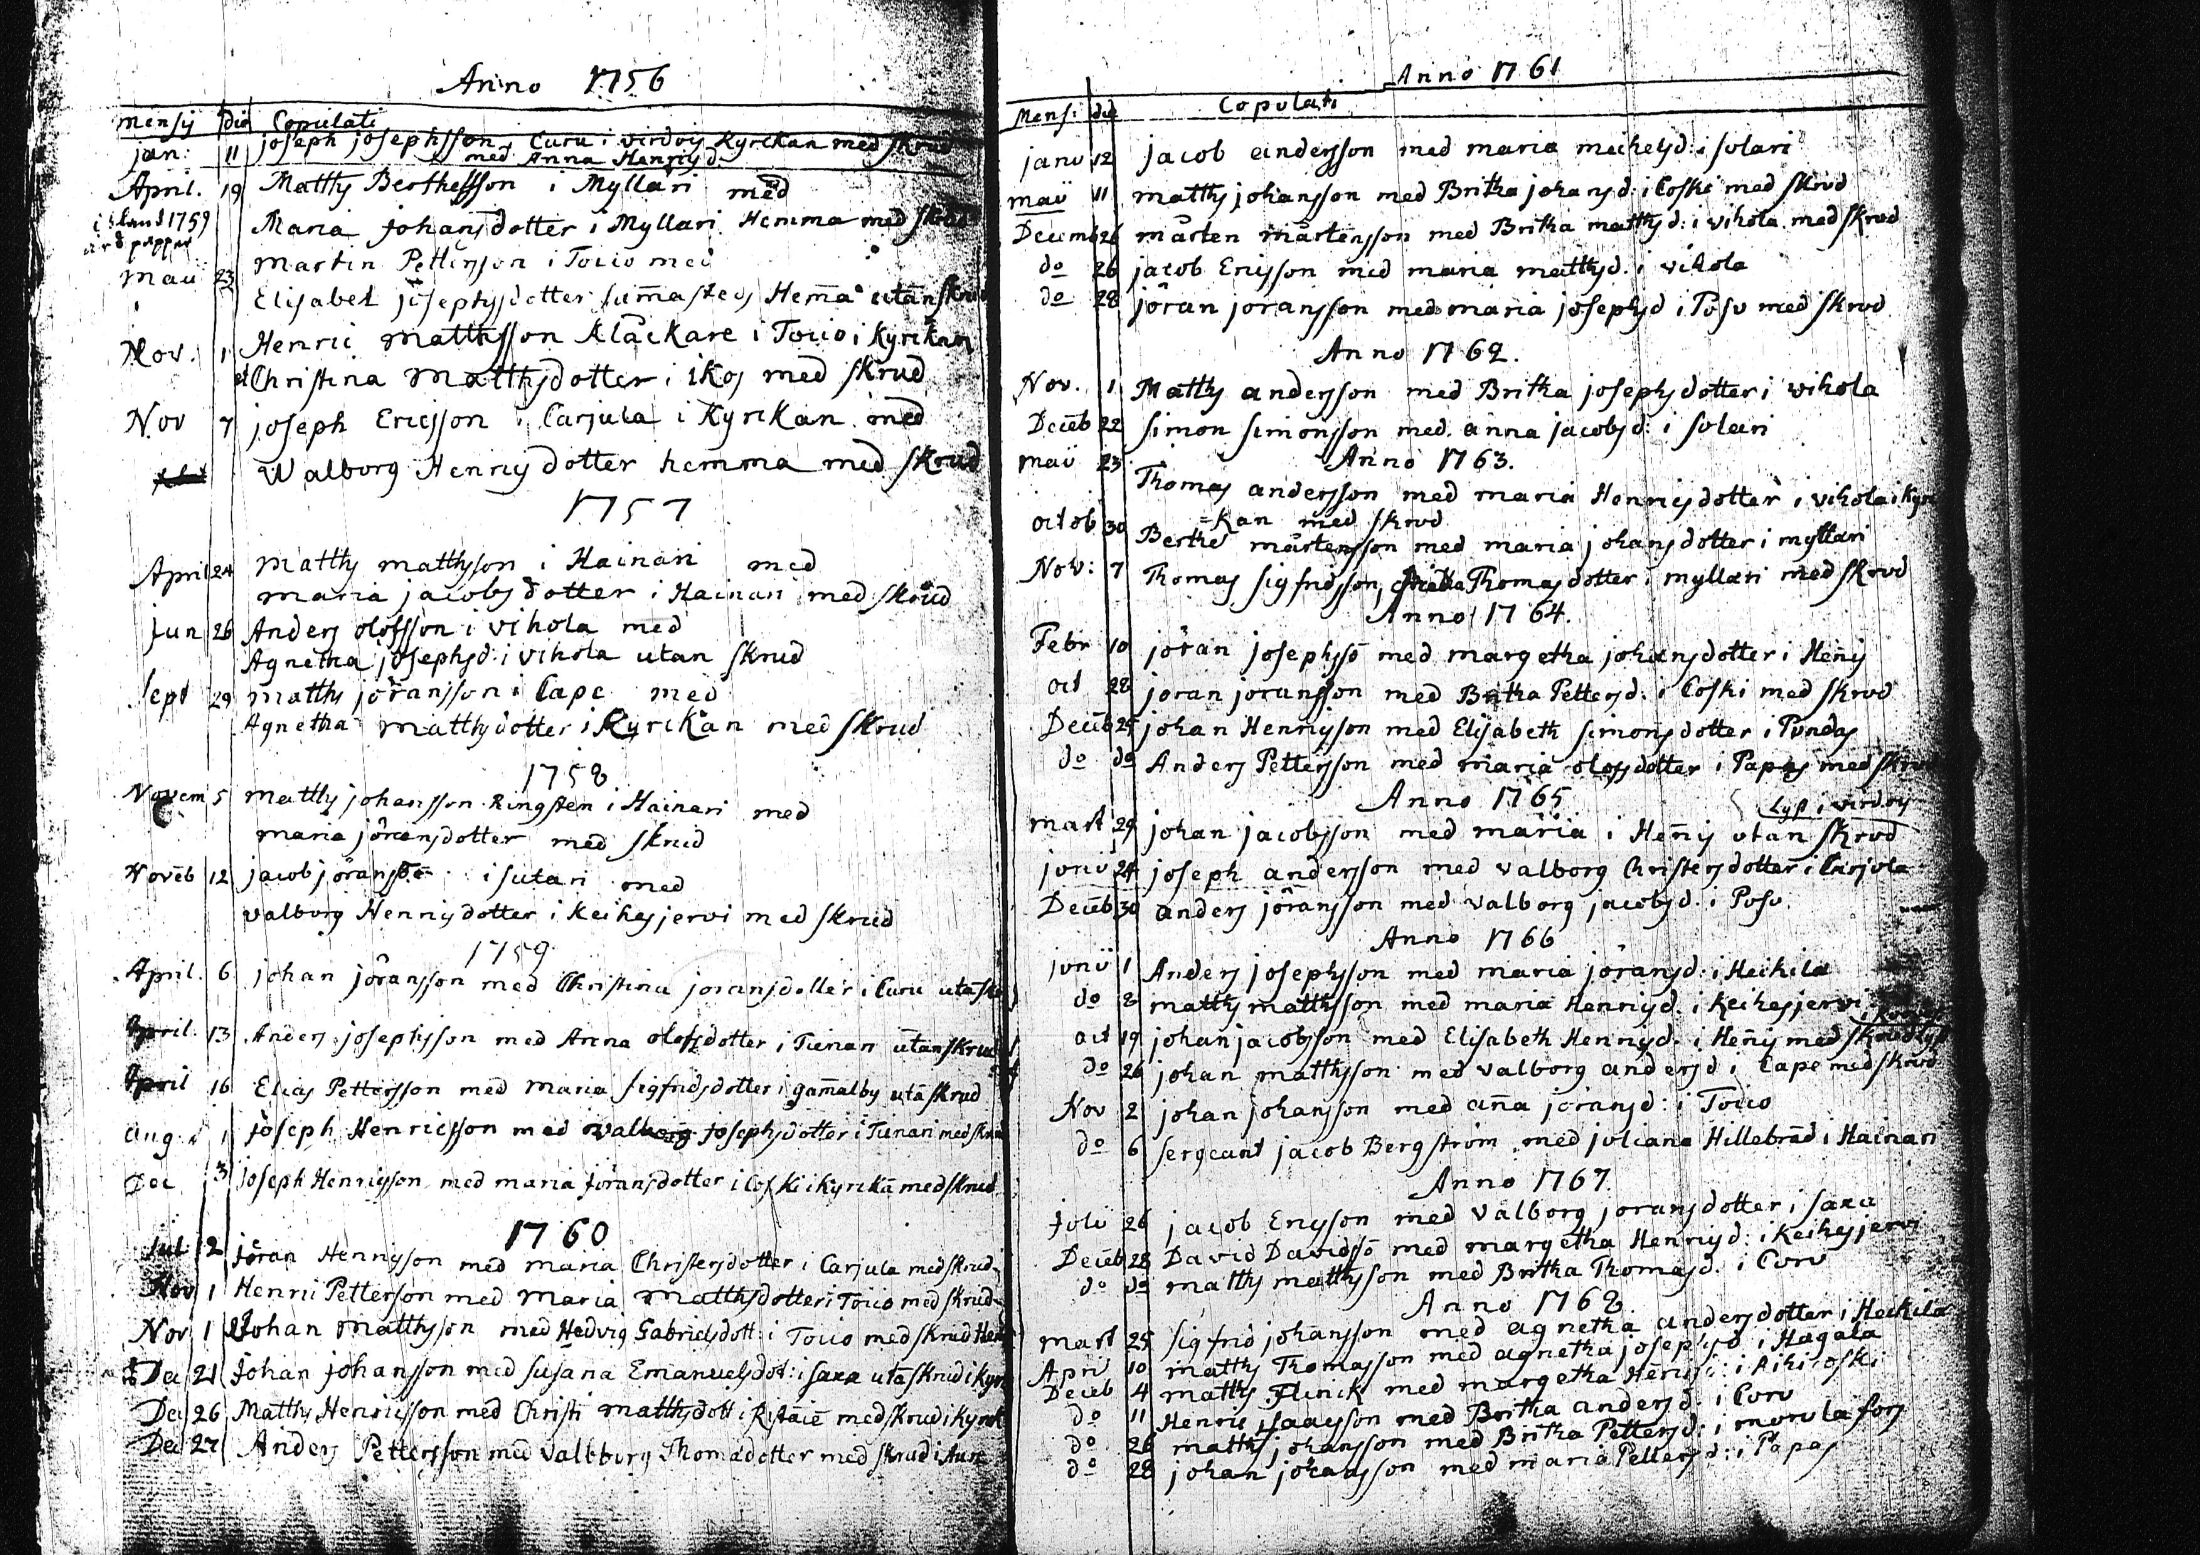 Anno 1756
Mensis die Copulati
jan: 11 joseph josephsson Curu i virdois Kyrckan med skrud
med Anna Henrisd
April. 19 Matths Berthelsson i Myllari med
Maria johansdotter i Myllari Hemma med skrud
Maii 23 Martin Pettersson i Toiio med
Elisabet josephsdotter Hem̄a utan skrud
Nov. 1 Henric Matthsson Klåckare i Toiio i Kyrckan
et Christina Matthsdotter i ikos med skrud
Nov 7 joseph Ericsson i Carjula i Kyrckan med
Walborg Henricsdotter hemma med skrud
1757
April 24 Matths matthsson i Hainari med
maria jacobsdotter i Hainari med skrud
Jun 26 Anders olofsson i vihola med
Agnetha josephsd: i vihola utan skrud
Sept 29 matths jöransson i Cape med
Agnetha matthsdotter i Kyrckan med skrud
1758
Novem 5 matths johansson Ringsten i Hainari med
maria jöransdotter med skrud
Novēb 12 jacob jöranssō i sutari med
valborg Henricsdotter i Keihesjervi med skrud
1759
April. 6 johan jöransson med Christina joransdotter i Curu utā
April. 13 Anders josephsson med Anna olofsdotter i Tienari utan skrud
April 16 Elias Pettersson med maria sigfridsdotter i gam̄alby utā skrud
aug: 1 joseph Henricsson med valborg josephsdotter i Tienari med
Dec 31 joseph Henricsson med maria jöransdotter i Coski i Kyrckā med skrud
1760
Jul 2 jöran Henricsson med maria Christersdotter i Carjula med skrud
Nov 1 Henric Pettersson med Maria Matthsdotter i Toiio med skrud
Nov 1 Johan Matthsson med Hedvig Gabrielsdott: i Toiio med skrud
Dec 21 Johan johansson med susana Emanuelsdot: i saxa utā skrud i
Dec 26 Matths Henricsson med Christi matthsdott i med skrud i
Dec 27 Anders Pettersson med Valbborg Thomasdotter med skrud i
Anno 1761
Mens: die Copulati
janu 12 jacob andersson med maria michelsd: i solari
maii 11 matths johansson med Britha johansd: i Coski med skrud
Decemb 26 mårten mårtensson med Britha matthsd: i vihola med skrud
do 26 jacob Ericsson med maria matthsd. i vihola
do 28 jöran joransson med maria josephsd i Poso med skrud
Anno 1762.
Nov. 1 Matths andersson med Britha josephsdotter i vihola
Decēb 22 simon simonsson med anna jacobsd: i solari
Anno 1763.
maii 23 Thomas andersson med maria Henricsdotter i vihola i Kyrc
=kan med skrud
octob 30 Berthel mårtensson med maria johansdotter i myllari
Nov: 7 Thomas sigfridsson, Thomasdotter i myllari med skrud
Anno 1764.
Febr 10 jöran josephssō med margetha johansdotter i Hen̄is
oct 28 joran joransson med Britha Pettersd: i Coski med skrud
Decēb 25 johan Henricsson med Elisabeth simonsdotter i Pundas
do do Anders Pettersson med maria olofsdotter i Papas med skrud
Anno 1765
Lyst i virdoys
mart 29 johan jacobsson med maria i Hen̄is utan skrud
junii 24 joseph andersson med valborg Christersdotter i Carjula
Decēb 30 anders jöransson med valborg jacobsd. i Poso
Anno 1766
junii 1 Anders josephsson med maria jöransd: i Heikila
do 8 matths matthsson med maria Henricsd. i Keihesjervi
oct 19 johan jacobsson med Elisabeth Henricsd. i Hen̄is med skrud Lyst
do 26 johan matthsson med valborg andersd i Cape med skrud
Nov 2 johan johansson med an̄a jöransd: i Toiio
do 6 sergeant jacob Bergström med juliana Hillebrād i Hainari
Anno 1767
Julii 26 jacob Ericsson med valborg joransdotter i saxa
Decēb 28 David Davidssō med margetha Henricsd: i Keihesjervi
do do matths matthsson med Britha Thomasd. i Coru
Anno 1768
mart 25 sigfrid johansson med agnetha andersdotter i Heikila
April 10 matths Thomasson med agnetha josephsd i Hagala
Decēb 4 matths Flinck med margetha Hēricsd: i Kihicoski
do 11 Henric isaacsson med Britha andersd: i Coru
do 26 matths johansson med Britha Pettersd: i morula fors
do 28 johan johansson med maria Pettersd: i Papas